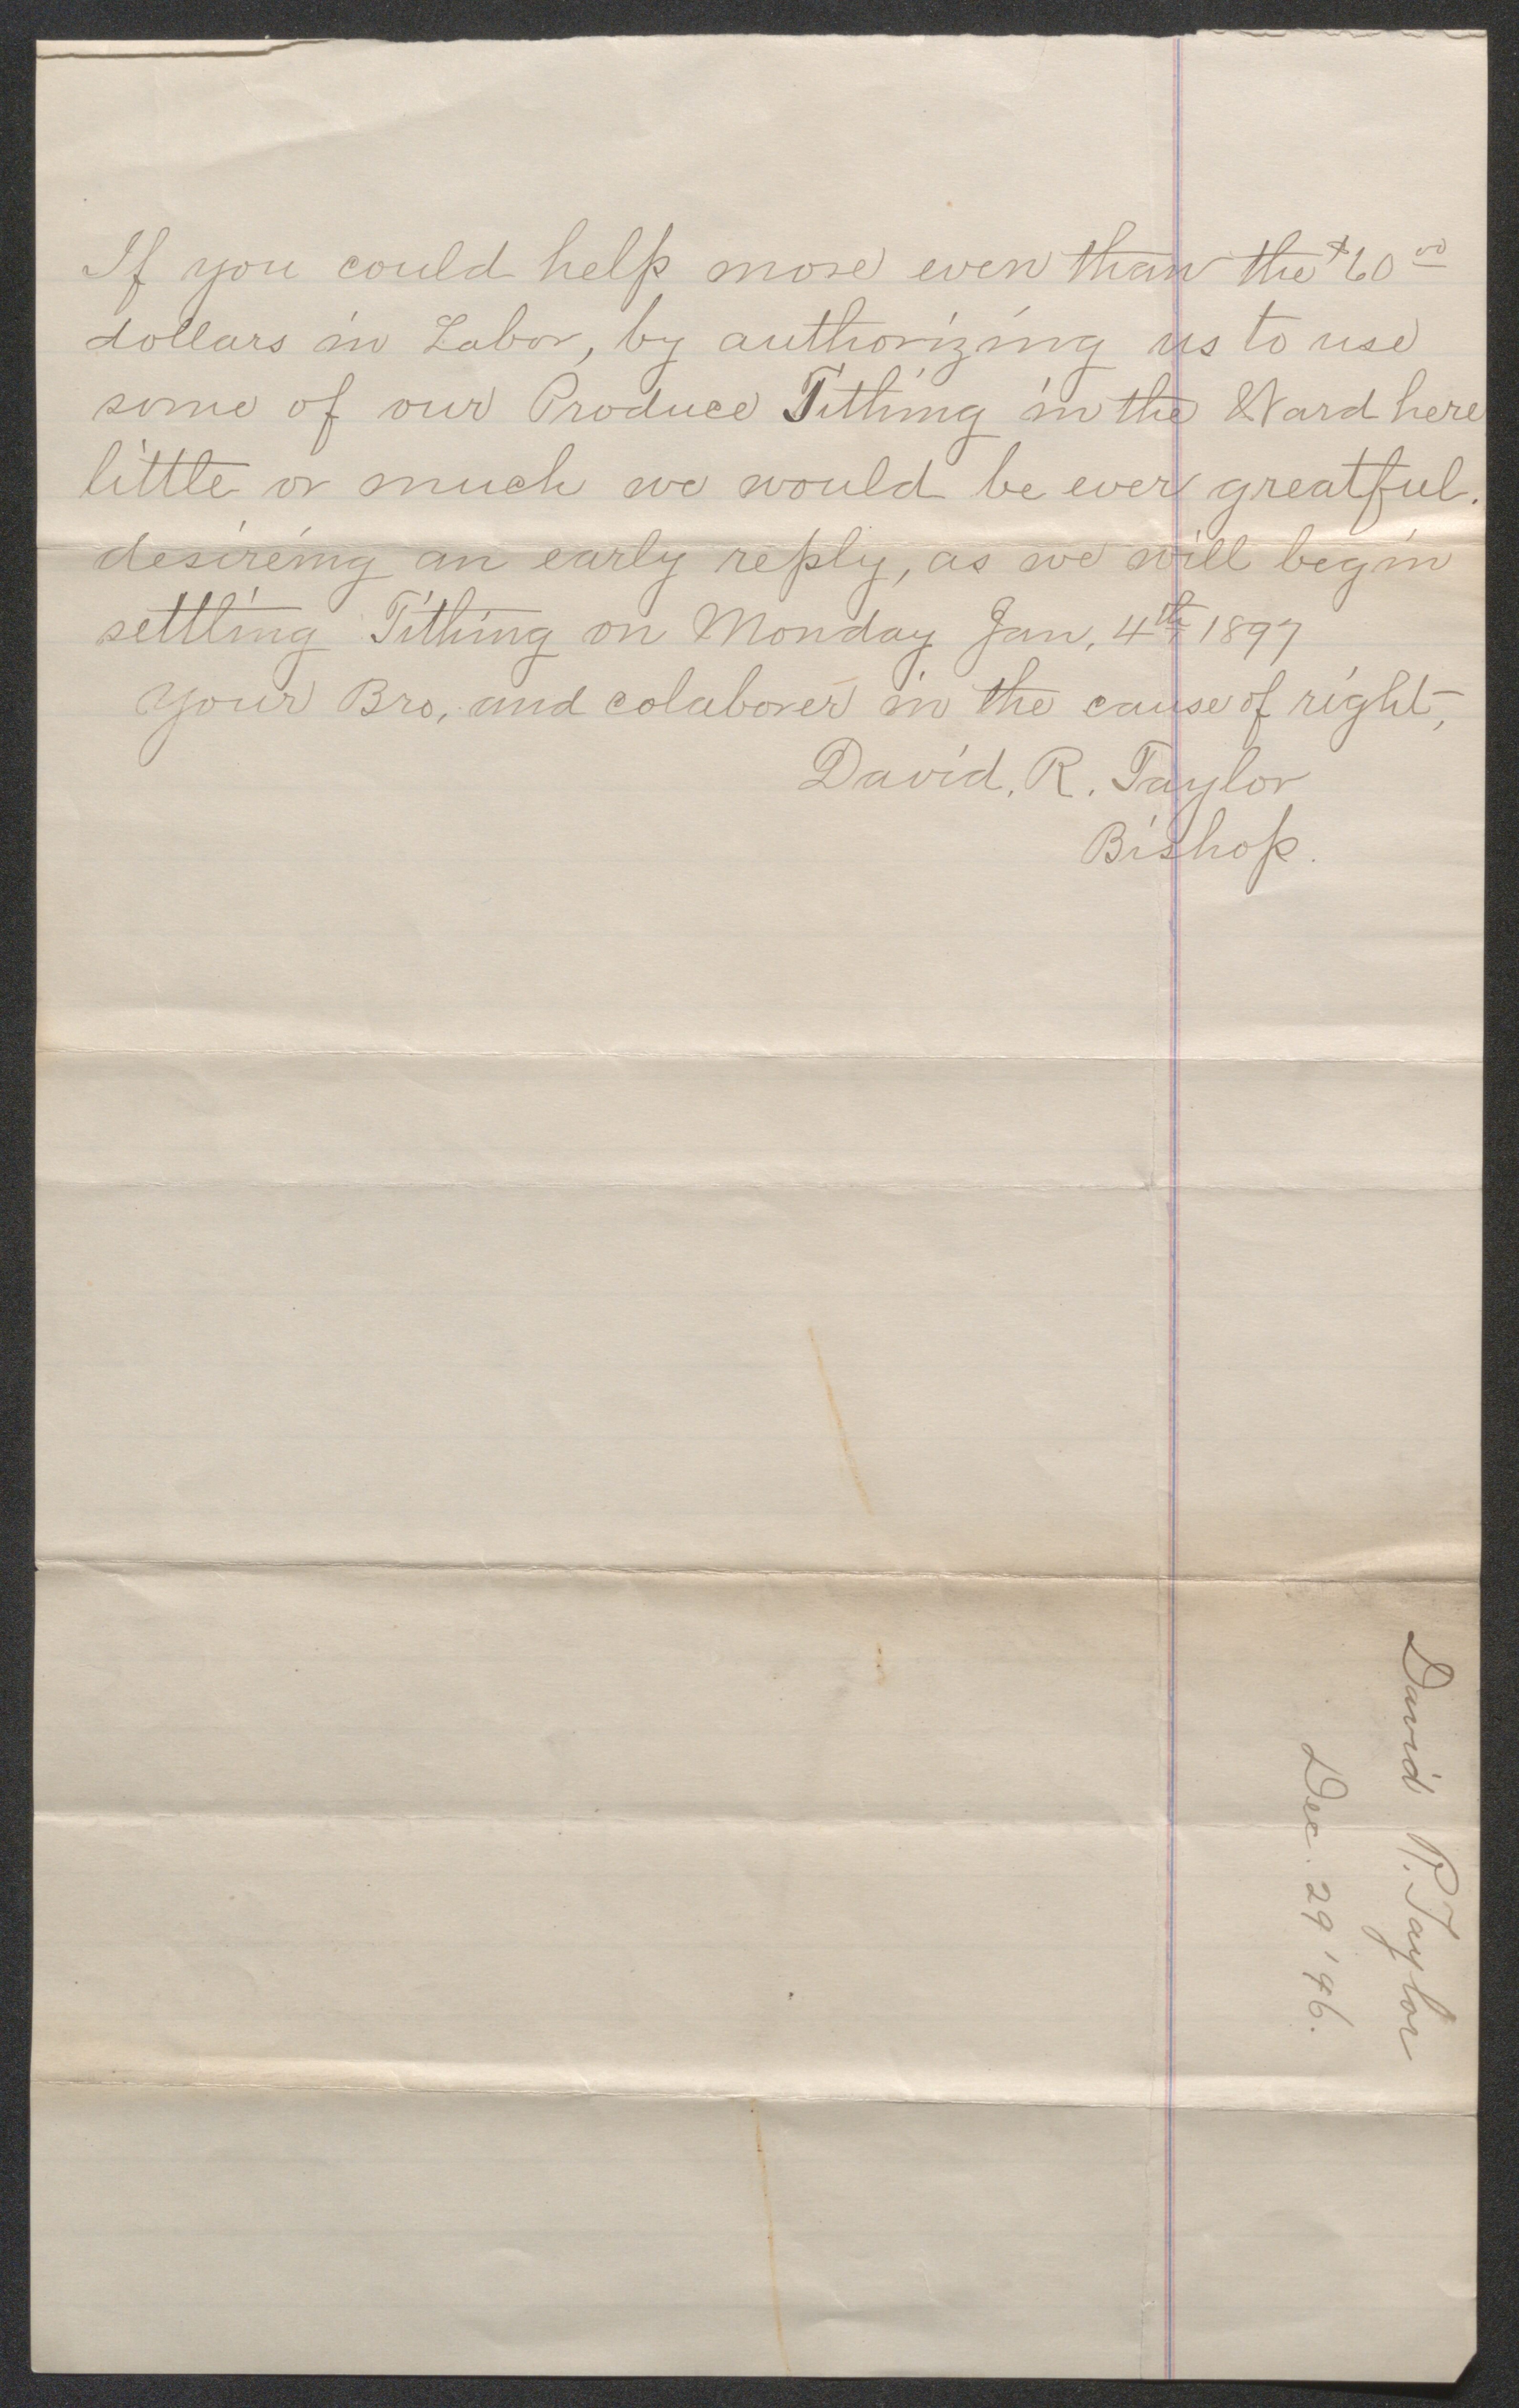 If you could help more even than the $60 00
dollars in Labor, by authorizing us to use
some of our Produce Tithing in the Ward here
little or much we would be ever greatful.
desireing an early reply, as we will begin
settling Tithing on Monday Jan, 4th 1897
Your Bro, and colaborer in the cause of right,
David. R. Taylor
Bishop.
David R. Taylor
Dec. 29 '96.